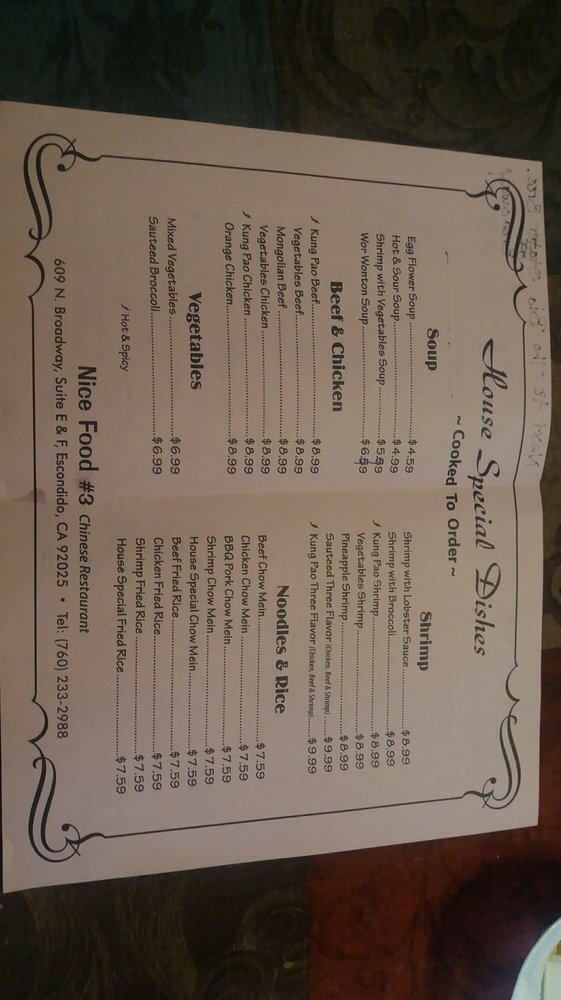 House Special Dishes
~ Cooked To Order ~
Soup
Egg Flower Soup $4.59
Hot & Sour Soup $4.99
Shrimp with Vegetables Soup $5.59
Wor Wonton Soup $6.59
Beef & Chicken
Kung Pao Beef $8.99
Vegetables Beef $8.99
Mongolian Beef $8.99
Vegetables Chicken $8.99
Kung Pao Chicken $8.99
Orange Chicken $8.99
Vegetables
Mixed Vegetables $6.99
Sauteed Broccoli $6.99
Hot & Spicy
Shrimp
Shrimp with Lobster Sauce $8.99
Shrimp with Broccoli $8.99
Kung Pao Shrimp $8.99
Vegetables Shrimp $8.99
Pineapple Shrimp $8.99
Sauteed Three Flavor (Chicken, Beef & Shrimp) $9.99
Kung Pao Three Flavor (Chicken, Beef & Shrimp) $9.99
Noodles & Rice
Beef Chow Mein $7.59
Chicken Chow Mein $7.59
BBQ Pork Chow Mein $7.59
Shrimp Chow Mein $7.59
House Special Chow Mein $7.59
Beef Fried Rice $7.59
Chicken Fried Rice $7.59
Shrimp Fried Rice $7.59
House Special Fried Rice $7.59
Nice Food #3 Chinese Restaurant
609 N. Broadway, Suite E & F, Escondido, CA 92025 • Tel: (760) 233-2988